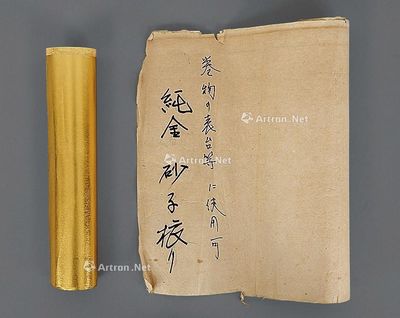 巻物の表台等に使用可
純金砂子振り
Artron.Net
Artron.Net
Artron.Net
Artron.Net